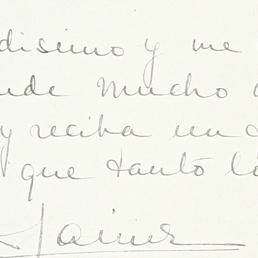 disimo y me
nde mucho
y reciba un
que tanto
Jaime